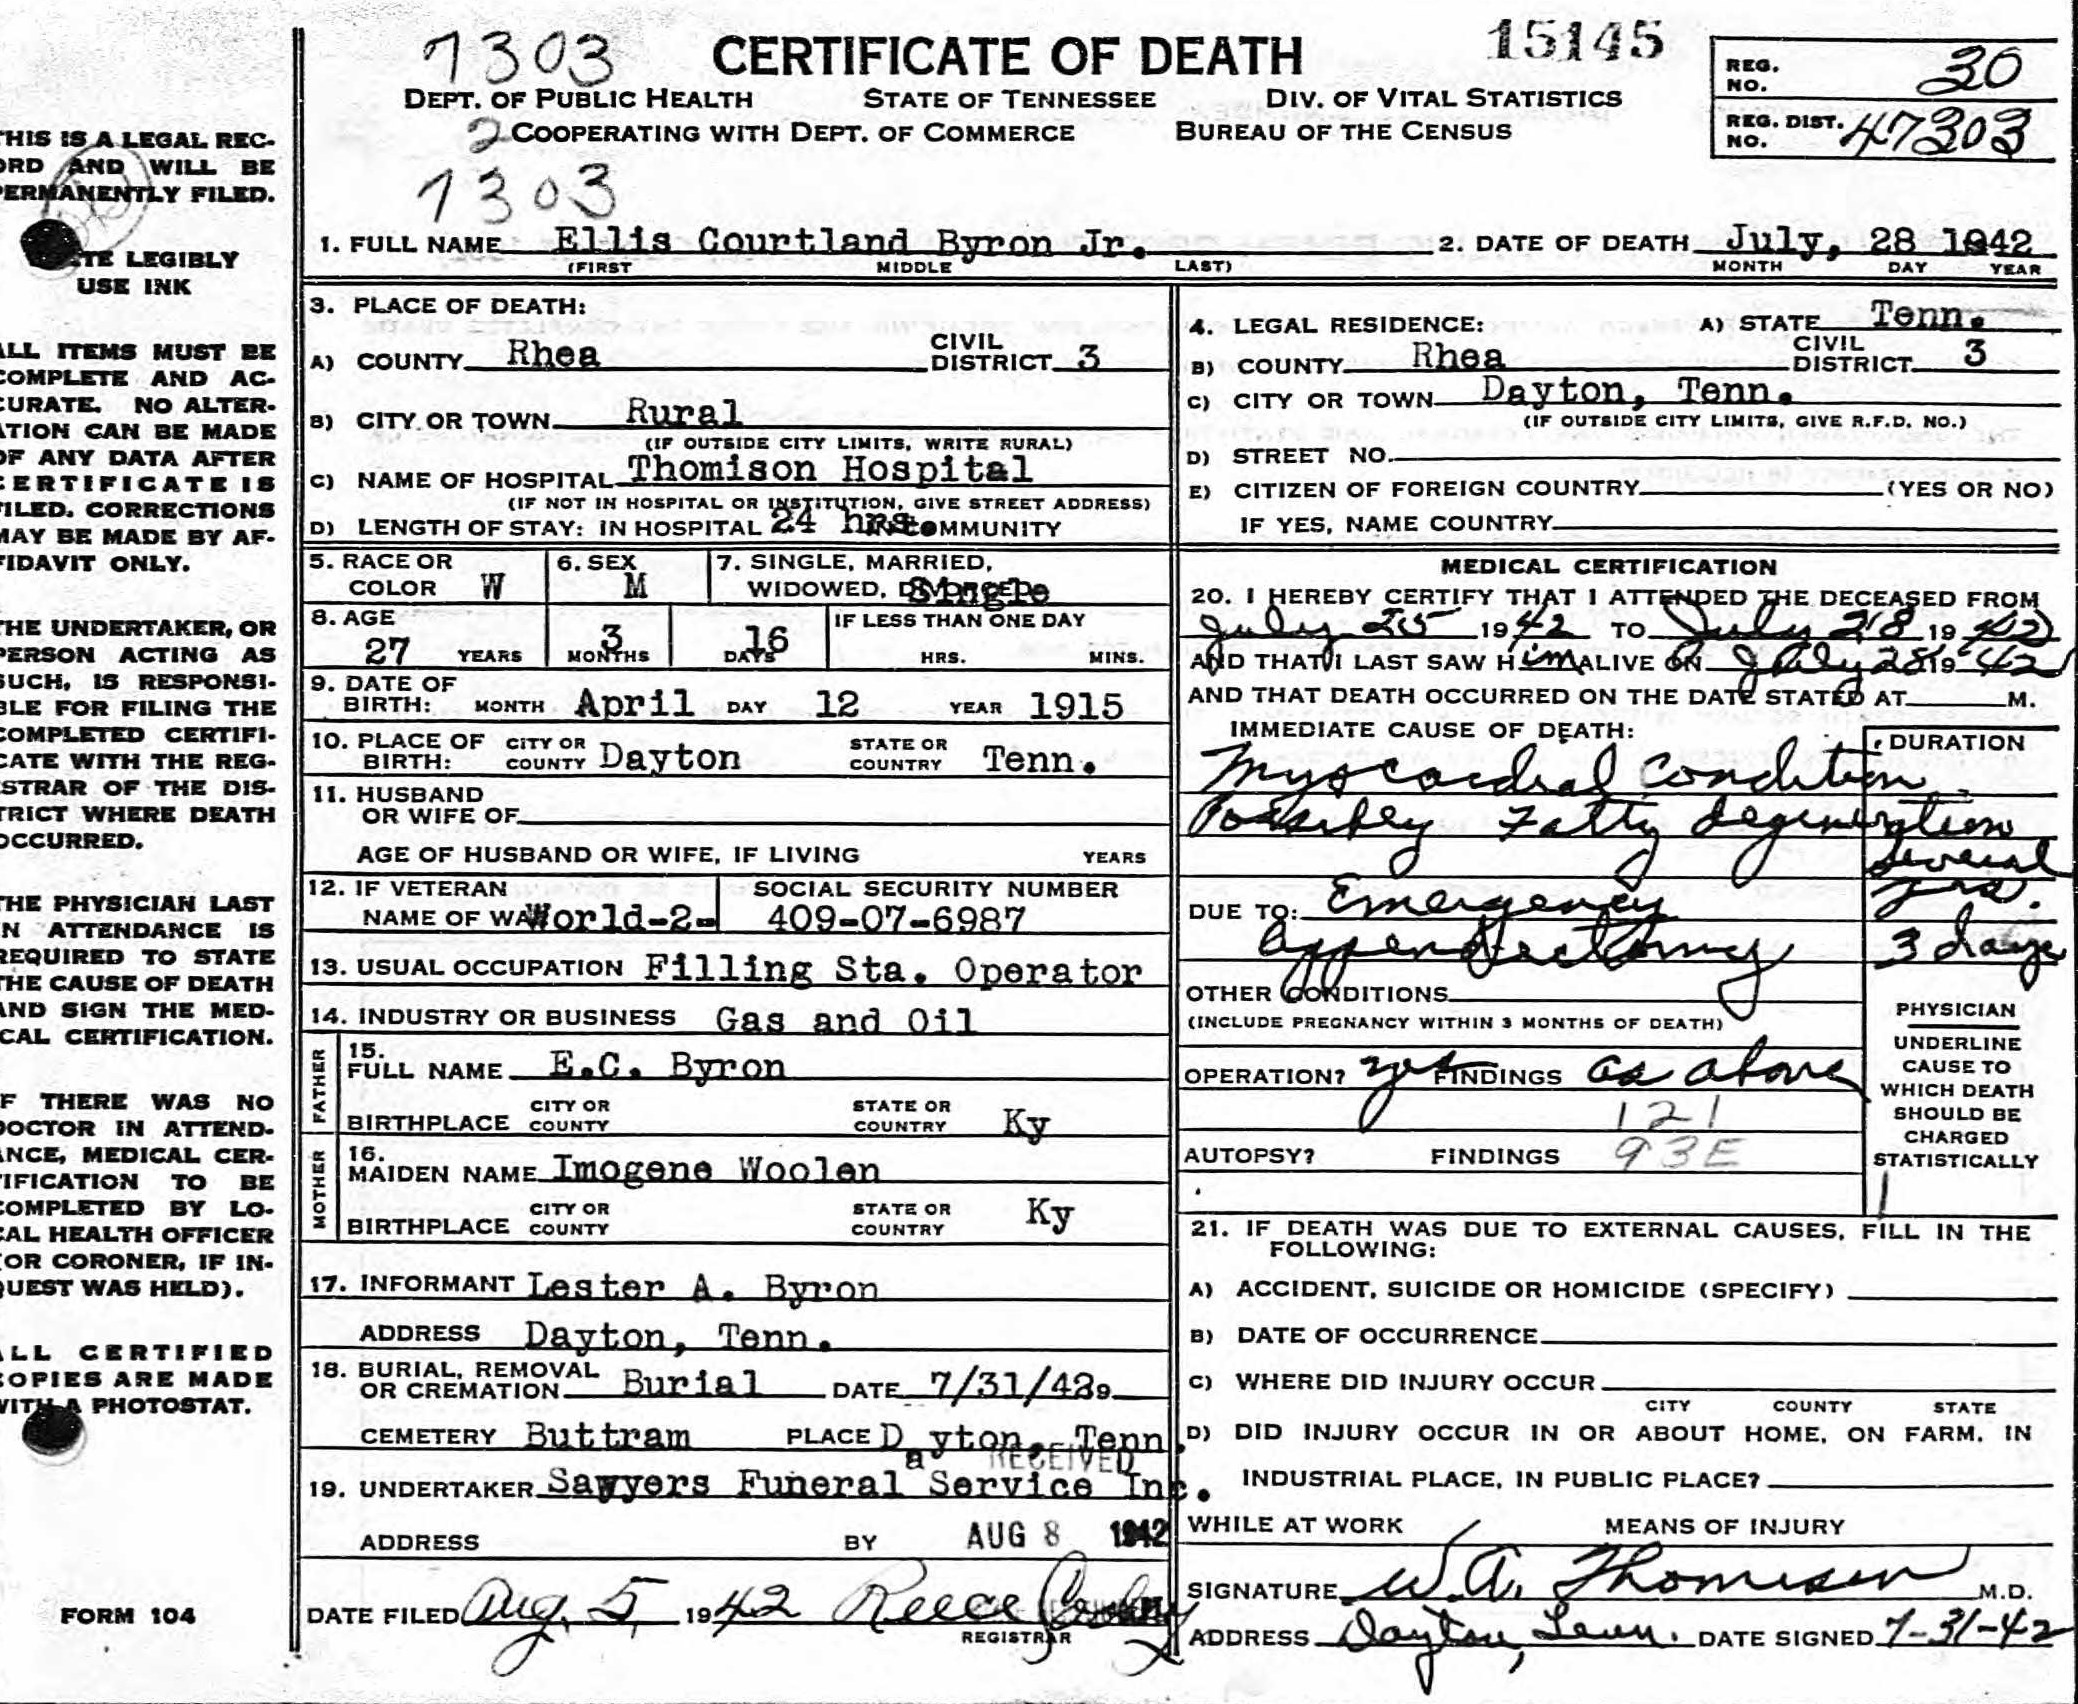 7303 CERTIFICATE OF DEATH 15145
DEPT. OF PUBLIC HEALTH STATE OF TENNESSEE DIV. OF VITAL STATISTICS
2 COOPERATING WITH DEPT. OF COMMERCE BUREAU OF THE CENSUS
7303
REG. NO. 30
REG. DIST. NO. 47303
THIS IS A LEGAL REC-
ORD AND WILL BE
PERMANENTLY FILED.
TE LEGIBLY
USE INK
ALL ITEMS MUST BE
COMPLETE AND AC-
CURATE. NO ALTER-
ATION CAN BE MADE
OF ANY DATA AFTER
CERTIFICATE IS
FILED. CORRECTIONS
MAY BE MADE BY AF-
FIDAVIT ONLY.
THE UNDERTAKER, OR
PERSON ACTING AS
SUCH, IS RESPONSI-
BLE FOR FILING THE
COMPLETED CERTIFI-
CATE WITH THE REG-
ISTRAR OF THE DIS-
TRICT WHERE DEATH
OCCURRED.
THE PHYSICIAN LAST
IN ATTENDANCE IS
REQUIRED TO STATE
THE CAUSE OF DEATH
AND SIGN THE MED-
ICAL CERTIFICATION.
IF THERE WAS NO
DOCTOR IN ATTEND-
ANCE, MEDICAL CER-
TIFICATION TO BE
COMPLETED BY LO-
CAL HEALTH OFFICER
(OR CORONER, IF IN-
QUEST WAS HELD).
ALL CERTIFIED
COPIES ARE MADE
WITH A PHOTOSTAT.
FORM 104
1. FULL NAME Ellis Courtland Byron Jr. 2. DATE OF DEATH July, 28 1942
(FIRST MIDDLE LAST) MONTH DAY YEAR
3. PLACE OF DEATH:
A) COUNTY Rhea CIVIL DISTRICT 3
B) CITY OR TOWN Rural
(IF OUTSIDE CITY LIMITS, WRITE RURAL)
C) NAME OF HOSPITAL Thomison Hospital
(IF NOT IN HOSPITAL OR INSTITUTION, GIVE STREET ADDRESS)
D) LENGTH OF STAY: IN HOSPITAL 24 hrs. IN COMMUNITY
4. LEGAL RESIDENCE: A) STATE Tenn.
B) COUNTY Rhea CIVIL DISTRICT 3
C) CITY OR TOWN Dayton, Tenn.
(IF OUTSIDE CITY LIMITS, GIVE R.F.D. NO.)
D) STREET NO.
E) CITIZEN OF FOREIGN COUNTRY (YES OR NO)
IF YES, NAME COUNTRY
5. RACE OR COLOR W 6. SEX M 7. SINGLE, MARRIED, WIDOWED, DIVORCED Single
8. AGE 27 YEARS 3 MONTHS 16 DAYS IF LESS THAN ONE DAY HRS. MINS.
9. DATE OF BIRTH: MONTH April DAY 12 YEAR 1915
10. PLACE OF BIRTH: CITY OR COUNTY Dayton STATE OR COUNTRY Tenn.
11. HUSBAND OR WIFE OF
AGE OF HUSBAND OR WIFE, IF LIVING YEARS
12. IF VETERAN NAME OF WAR World-2- SOCIAL SECURITY NUMBER 409-07-6987
13. USUAL OCCUPATION Filling Sta. Operator
14. INDUSTRY OR BUSINESS Gas and Oil
FATHER
15. FULL NAME E.C. Byron
BIRTHPLACE CITY OR COUNTY STATE OR COUNTRY Ky
MOTHER
16. MAIDEN NAME Imogene Woolen
BIRTHPLACE CITY OR COUNTY STATE OR COUNTRY Ky
17. INFORMANT Lester A. Byron
ADDRESS Dayton, Tenn.
18. BURIAL, REMOVAL OR CREMATION Burial DATE 7/31/42
CEMETERY Buttram PLACE Dayton, Tenn.
RECEIVED
19. UNDERTAKER Sawyers Funeral Service Inc.
ADDRESS BY AUG 8 1942
DATE FILED Aug. 5, 1942 Reece
REGISTRAR
MEDICAL CERTIFICATION
20. I HEREBY CERTIFY THAT I ATTENDED THE DECEASED FROM
July 25 1942 TO July 28 1942
AND THAT I LAST SAW HIM ALIVE ON July 28 1942
AND THAT DEATH OCCURRED ON THE DATE STATED AT M.
IMMEDIATE CAUSE OF DEATH: DURATION
Myocardial condition
Possibly Fatty degeneration
several yrs.
DUE TO: Emergency
appendectomy 3 days
OTHER CONDITIONS
(INCLUDE PREGNANCY WITHIN 3 MONTHS OF DEATH)
OPERATION? yes FINDINGS as above
121
AUTOPSY? FINDINGS 93E
PHYSICIAN
UNDERLINE
CAUSE TO
WHICH DEATH
SHOULD BE
CHARGED
STATISTICALLY
21. IF DEATH WAS DUE TO EXTERNAL CAUSES, FILL IN THE
FOLLOWING:
A) ACCIDENT, SUICIDE OR HOMICIDE (SPECIFY)
B) DATE OF OCCURRENCE
C) WHERE DID INJURY OCCUR
CITY COUNTY STATE
D) DID INJURY OCCUR IN OR ABOUT HOME, ON FARM, IN
INDUSTRIAL PLACE, IN PUBLIC PLACE?
WHILE AT WORK MEANS OF INJURY
SIGNATURE W.A. Thomison M.D.
ADDRESS Dayton, Tenn. DATE SIGNED 7-31-42